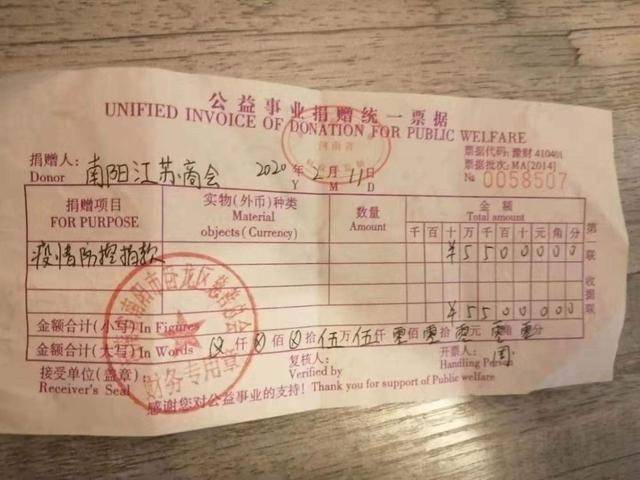 公益事业捐赠统一票据
UNIFIED INVOICE OF DONATION FOR PUBLIC WELFARE
河南省
捐赠人: 南阳江苏商会 2020 年 2 月 11 日
Donor Y M D
票据代码: 豫财 410401
票据批次: MA[2014]
№ 0058507
捐赠项目 实物(外币)种类 数量 金额
FOR PURPOSE Material objects(Currency) Amount Total amount
千 百 十 万 千 百 十 元 角 分
疫情防控捐款 ¥ 5 5 0 0 0 0 0
第一联 收据联
金额合计(小写) In Figures ¥ 5 5 0 0 0 0 0
金额合计(大写) In Words 仟 佰 拾 伍 万 伍 仟 零 佰 零 拾 零 元 零 角 零 分
接受单位(盖章): 复核人: 开票人: 周
Receiver's Seal Verified by Handling Person
感谢您对公益事业的支持! Thank you for support of Public welfare
南阳市卧龙区慈善总会
财务专用章